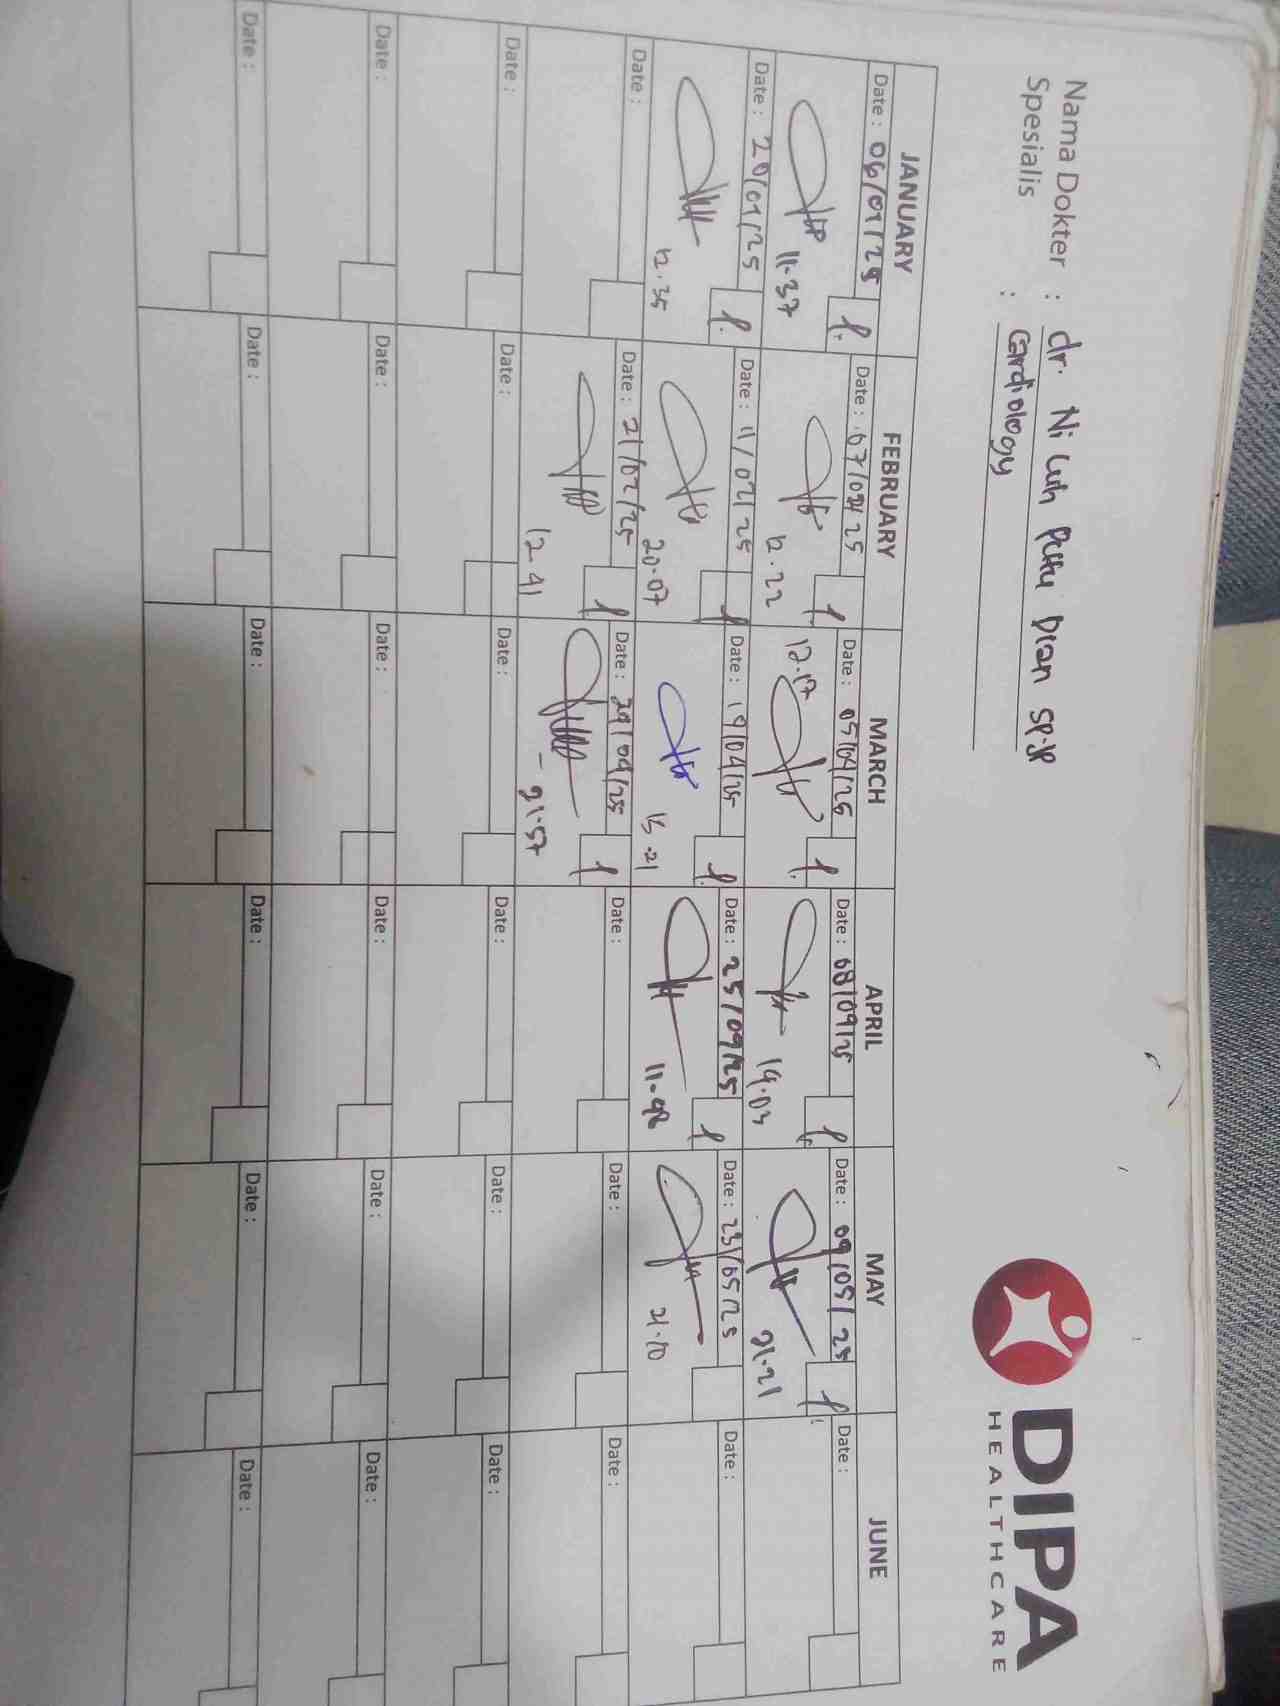 Nama Dokter : dr. Ni Luh Putu Dian SP.JP
Spesialis : Cardiology
DIPA
HEALTHCARE
JANUARY FEBRUARY MARCH APRIL MAY JUNE
Date : 06/01/25 Date : 07/02/25 Date : 05/04/25 Date : 08/09/25 Date : 09/05/25 Date :
11.37 12.22 12.17 19.03 21.21
Date : 20/01/25 Date : 11/02/25 Date : 19/04/25 Date : 25/09/25 Date : 23/05/25 Date :
12.35 20.07 13.21 11.48 21.10
Date : Date : 21/02/25 Date : 29/04/25 Date : Date : Date :
12.41 - 21.57
Date : Date : Date : Date : Date : Date :
Date : Date : Date : Date : Date : Date :
Date : Date : Date : Date : Date : Date :